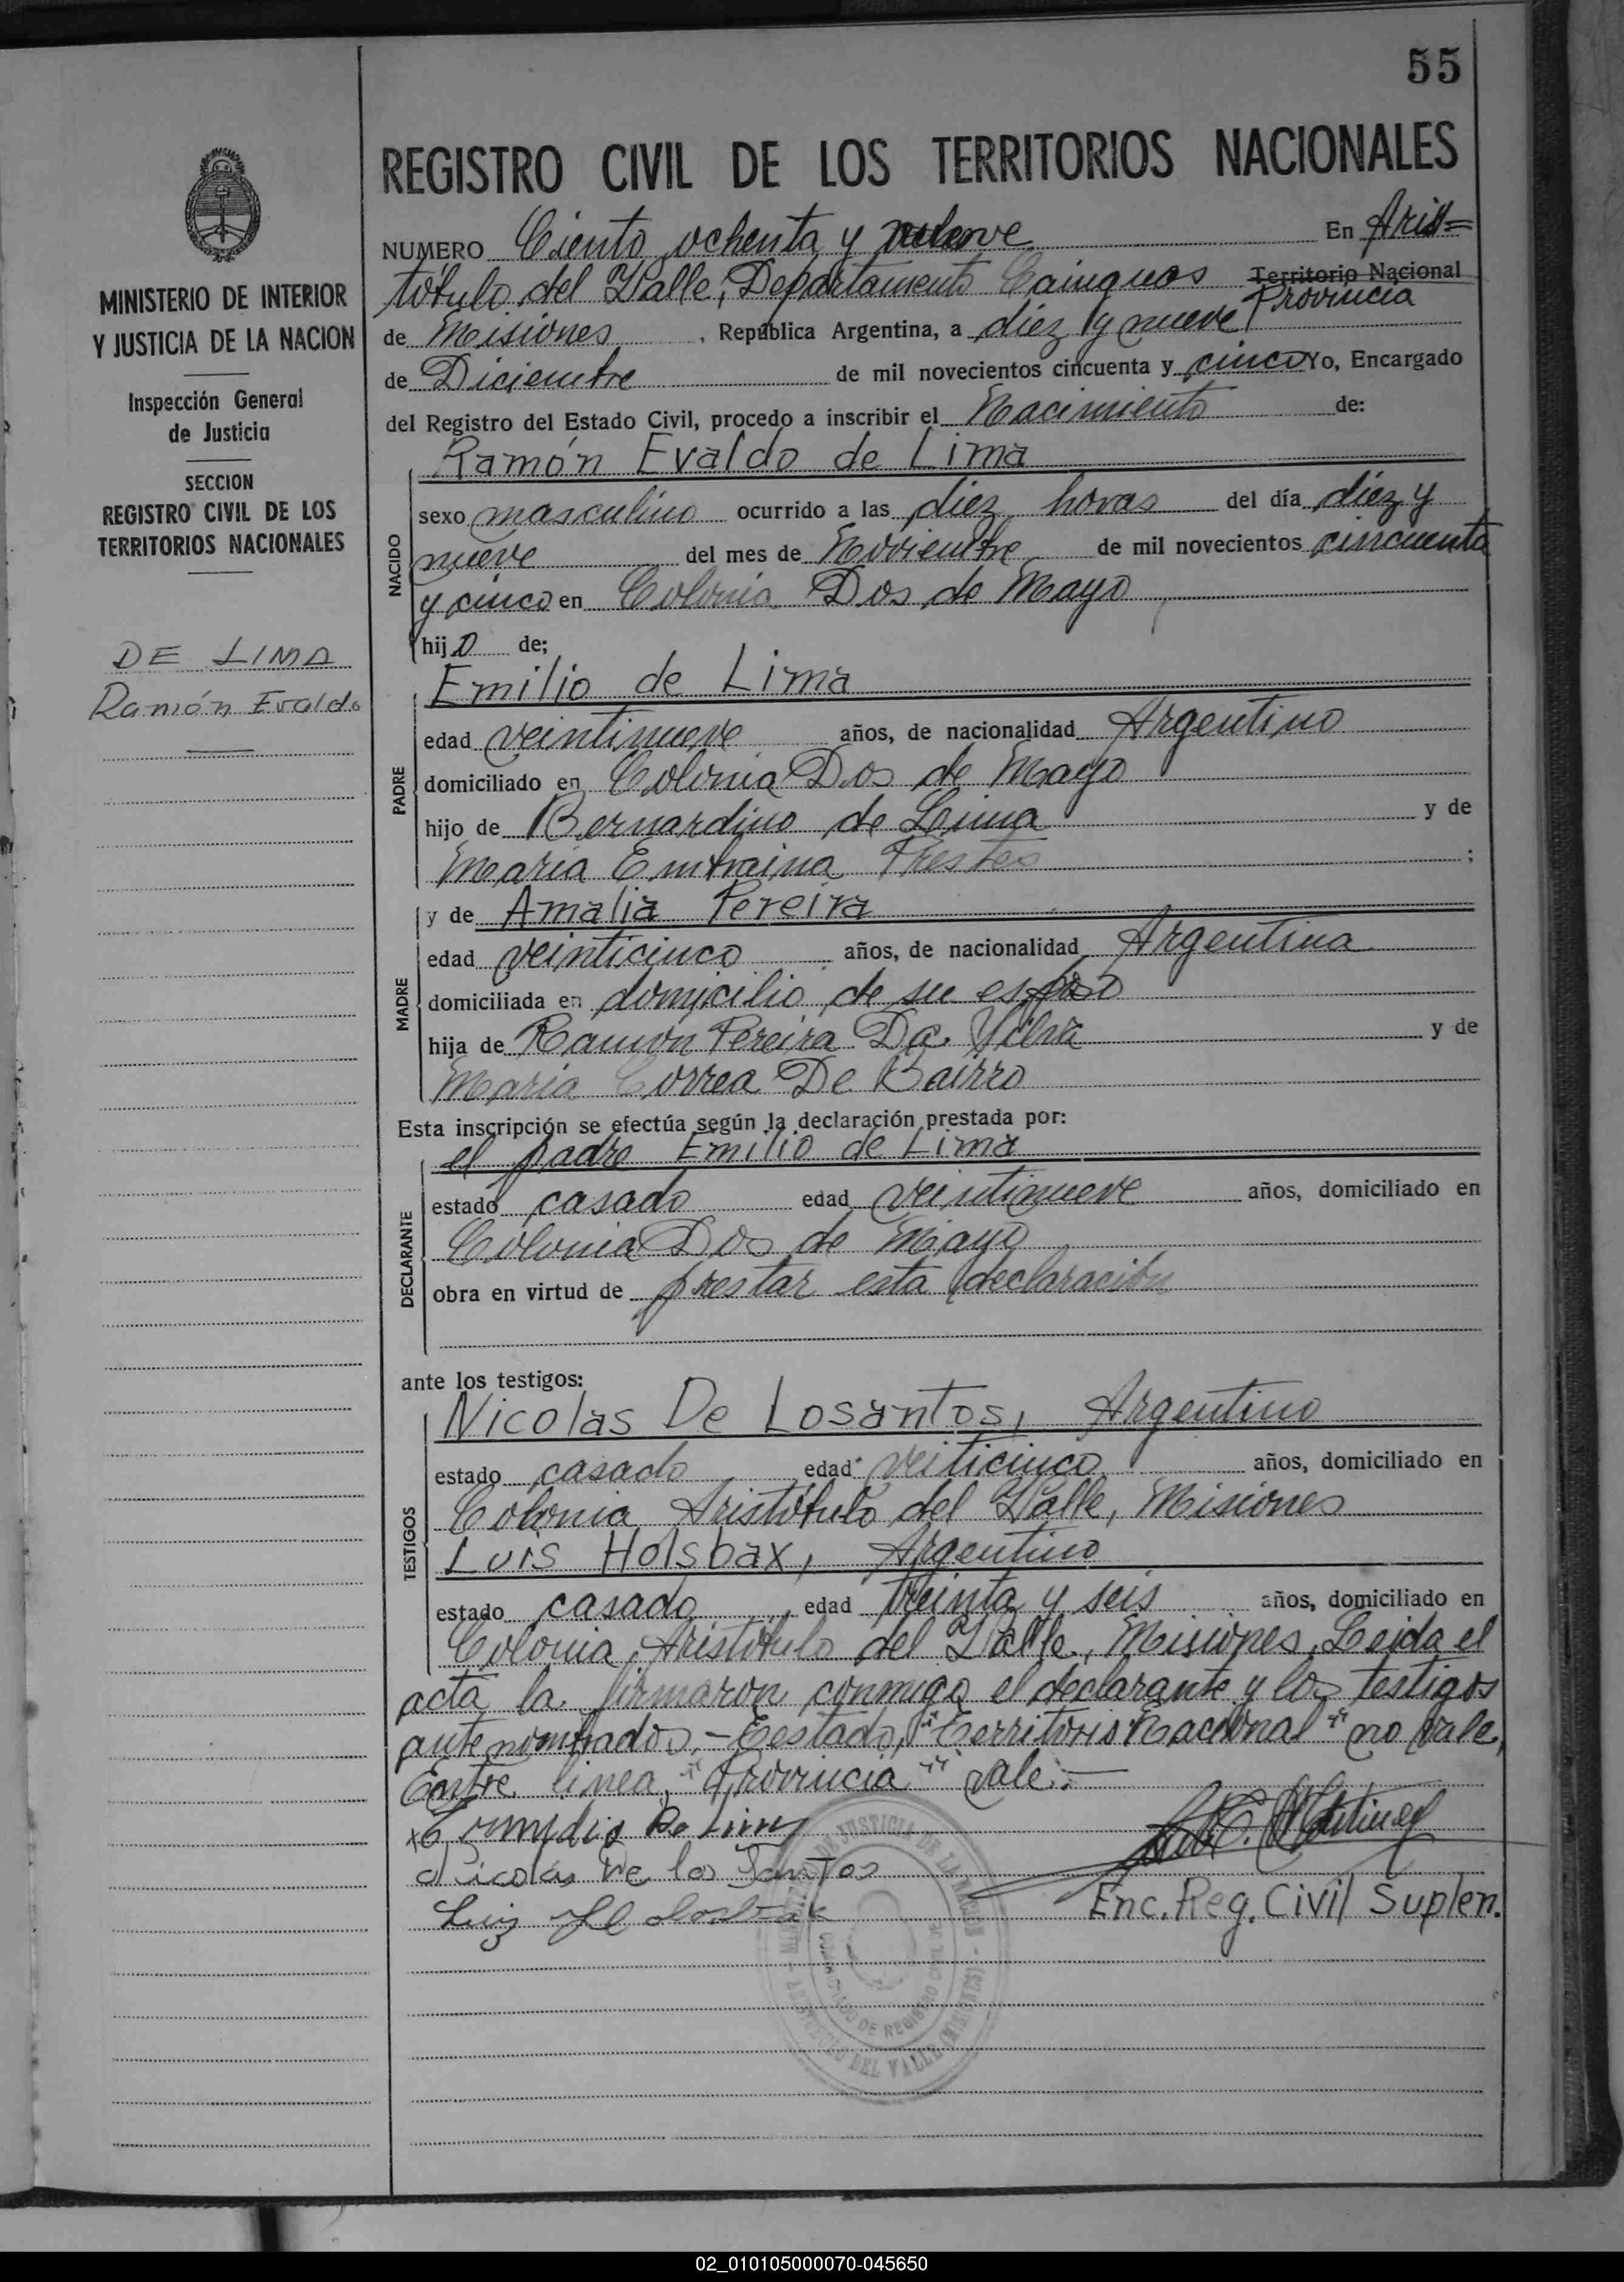 55
REGISTRO CIVIL DE LOS TERRITORIOS NACIONALES
MINISTERIO DE INTERIOR
Y JUSTICIA DE LA NACION
Inspección General
de Justicia
SECCION
REGISTRO CIVIL DE LOS
TERRITORIOS NACIONALES
DE LIMA
Ramón Evaldo
NUMERO Ciento ochenta y nueve En Aris=
tóbulo del Valle, Departamento Cainguas Territorio Nacional
Provincia
de Misiones, República Argentina, a diez y nueve
de Diciembre de mil novecientos cincuenta y cinco Yo, Encargado
del Registro del Estado Civil, procedo a inscribir el Nacimiento de:
Ramón Evaldo de Lima
NACIDO
sexo masculino ocurrido a las diez horas del día diez y
nueve del mes de Noviembre de mil novecientos cincuenta
y cinco en Colonia Dos de Mayo
hijo de;
Emilio de Lima
PADRE
edad veintinueve años, de nacionalidad Argentino
domiciliado en Colonia Dos de Mayo
hijo de Bernardino de Lima y de
Maria Prestes ;
MADRE
y de Amalia Pereira
edad veinticinco años, de nacionalidad Argentina
domiciliada en domicilio de su esposo
hija de Ramon Pereira Da Silva y de
Maria Correa De Bairro
Esta inscripción se efectúa según la declaración prestada por:
el padre Emilio de Lima
DECLARANTE
estado casado edad veintinueve años, domiciliado en
Colonia Dos de Mayo
obra en virtud de prestar esta declaración
ante los testigos:
Nicolas De Losantos, Argentino
TESTIGOS
estado casado edad veiticinco años, domiciliado en
Colonia Aristóbulo del Valle, Misiones
Luis Holsbax, Argentino
estado casado edad treinta y seis años, domiciliado en
Colonia Aristóbulo del Valle, Misiones, Leida el
acta la firmaron conmigo el declarante y los testigos
antenombrados.- "Territorio Nacional" no vale,
Entre linea, "Provincia" vale.-
De Lima
Nicolás De los Santos
Luis
Enc. Reg. Civil Suplen.
JUSTICIA DE LA NACION
DEL VALLE (MISIONES)
02_010105000070-045650